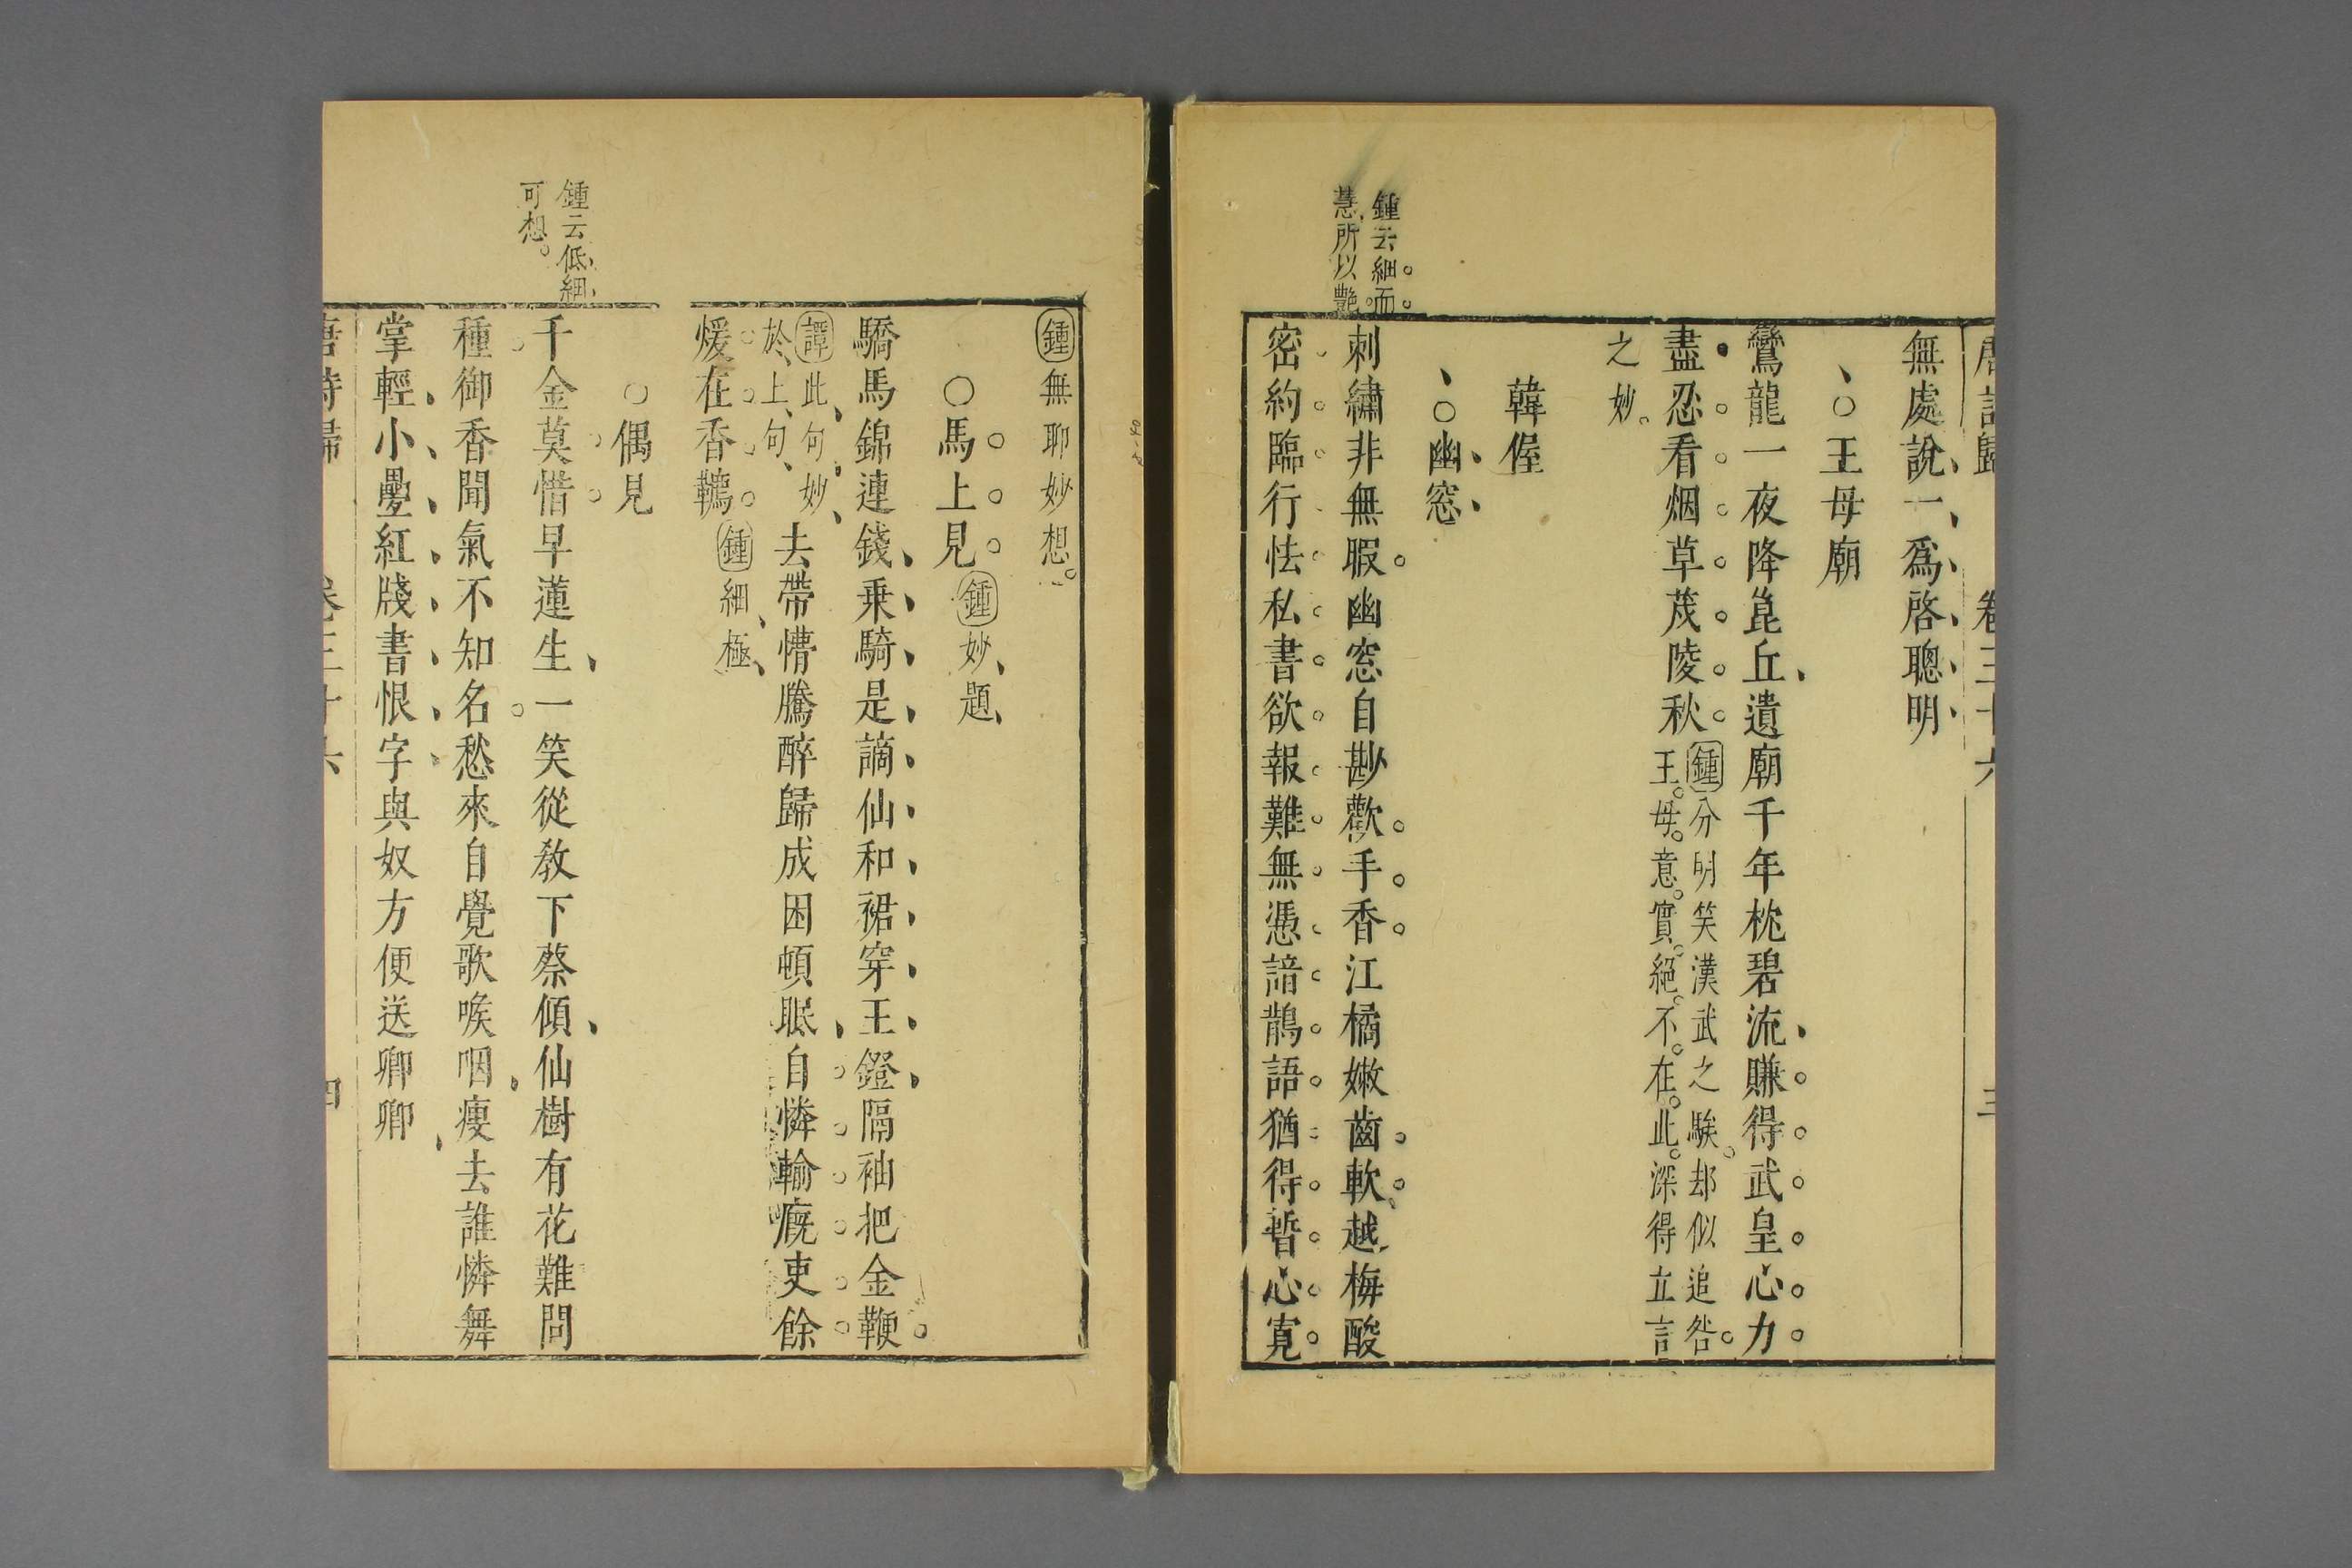 唐詩歸 卷三十六 三
無處說一爲啓聰明
○王母廟
鸞龍一夜降崑丘遺廟千年枕碧流賺得武皇心力
盡忍看烟草茂陵秋
鍾分明笑漢武之騃却似追咎
王母意實絕不在此深得立言
之妙
韓偓
○幽窓
鍾云細而
慧所以艷
刺繡非無暇幽窓自尠歡手香江橘嫩齒軟越梅酸
密約臨行怯私書欲報難無憑諳鵲語猶得暫心寬
鍾無聊妙想
○馬上見鍾妙題
驕馬錦連錢乗騎是謫仙和裙穿玉鐙隔袖把金鞭
譚此句妙
於上句
去帶懵騰醉歸成困頓眠自憐輸廐吏餘
煖在香韉鍾細極
○偶見
鍾云低細
可想
千金莫惜旱蓮生一笑從教下蔡傾仙樹有花難問
種御香聞氣不知名愁來自覺歌喉咽瘦去誰憐舞
掌輕小疊紅牋書恨字與奴方便送卿卿
唐詩歸 卷三十六 四